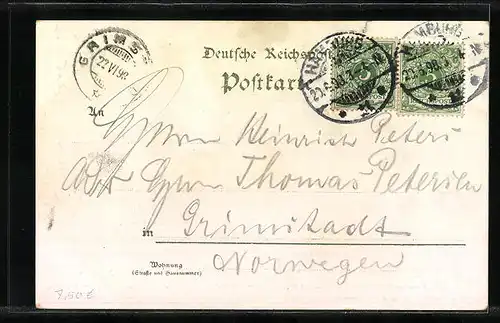 GRIMST
22 VI 98
Deutsche Reichspost
Postkarte
HAMBURG
An
Herrn Heinrich Peters
Adr. Herrn Thomas Petersen
in Grimstadt
Norwegen
Wohnung
(Straße und Hausnummer)